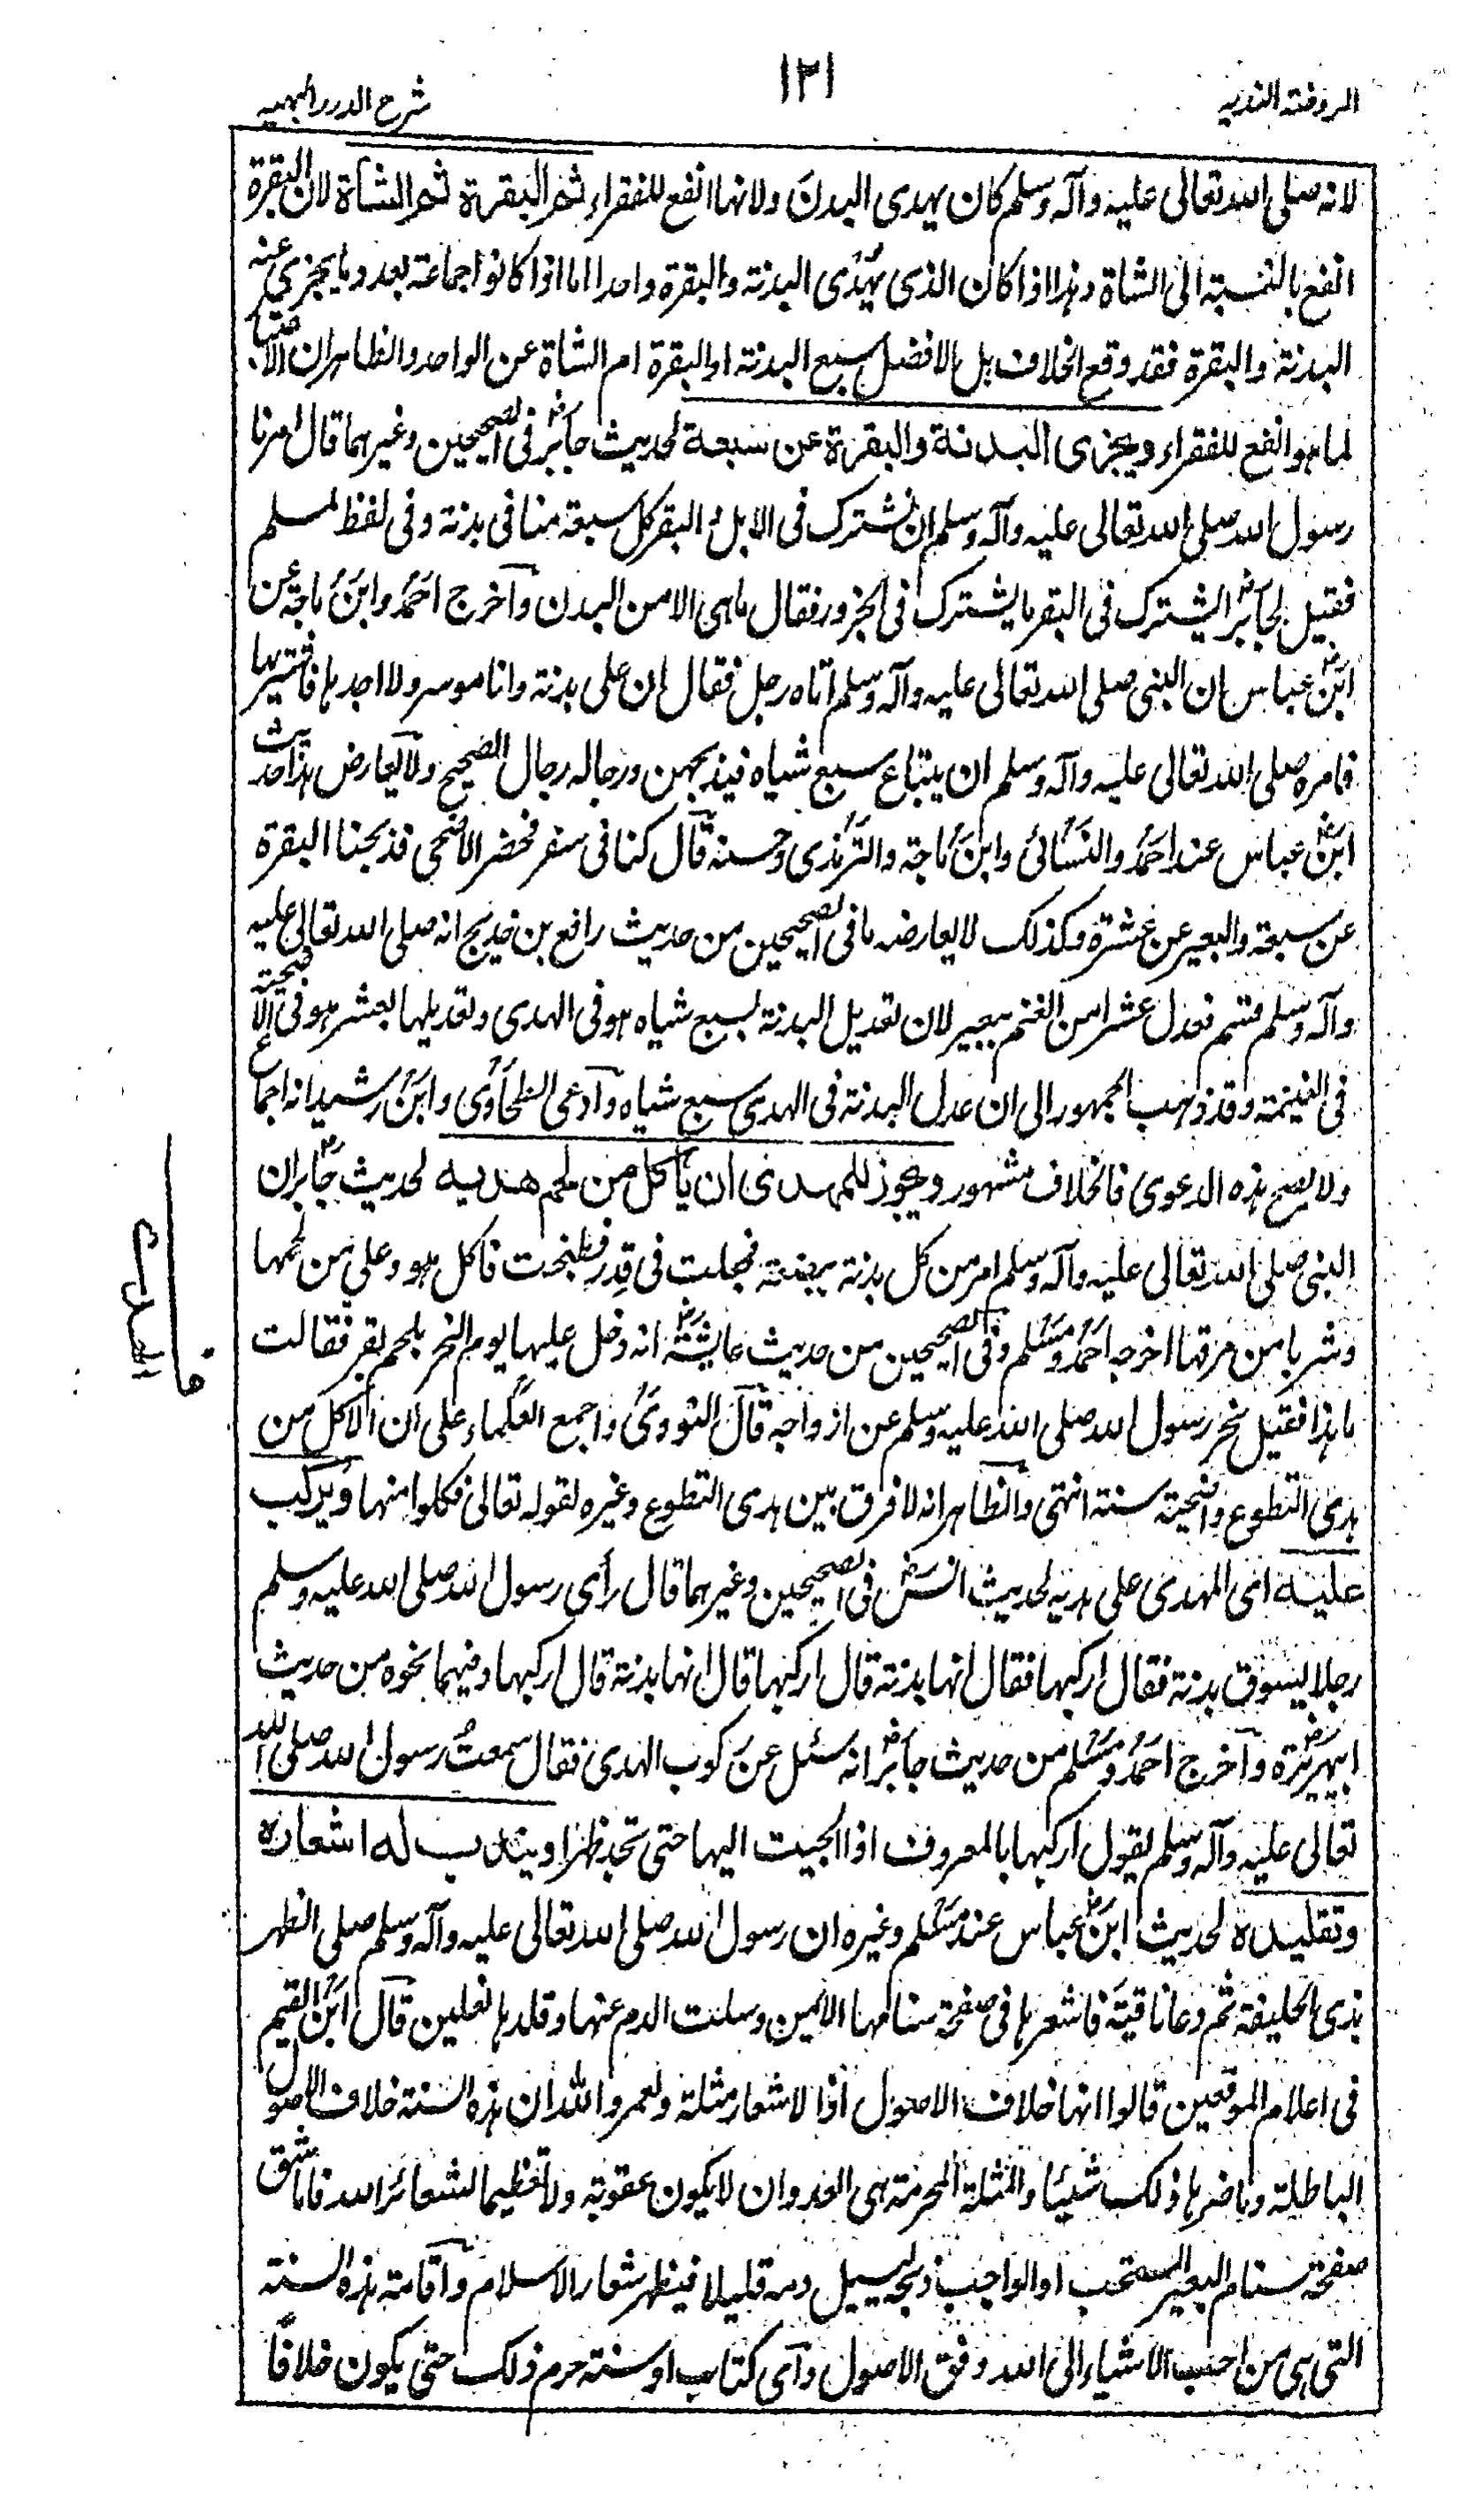 الروضة الندية
١٢١
شرح الدرر البهية
لانه صلى الله تعالى عليه وآله وسلم كان يهدى البدن ولانها انفع للفقراء ثم البقرة ثم الشاة لان البقرة
انفع بالنسبة الى الشاة وهذا اذا كان الذى يهدى البدنة والبقرة واحدا اما اذا كانوا جماعة بعدد ما يجزئ عنه
البدنة والبقرة فقد وقع الخلاف هل الافضل سبع البدنة او البقرة ام الشاة عن الواحد والظاهر ان الاعتبار
لما هو انفع للفقراء ويجزى البدنة والبقرة عن سبعة لحديث جابر فى الصحيحين وغيرهما قال امرنا
رسول الله صلى الله تعالى عليه وآله وسلم ان نشترك فى الابل والبقر كل سبعة منا فى بدنة وفى لفظ لمسلم
فقيل لجابر ايشترك فى البقر ما يشترك فى الجزور فقال ما هى الا من البدن وآخرج احمد وابن ماجة عن
ابن عباس ان النبى صلى الله تعالى عليه وآله وسلم اتاه رجل فقال ان على بدنة وانا موسر ولا اجدها فاشتريها
فامره صلى الله تعالى عليه وآله وسلم ان يبتاع سبع شياه فيذبحهن ورجاله رجال الصحيح ولا يعارض هذا حديث
ابن عباس عند احمد والنسائى وابن ماجة والترمذى وحسنه قال كنا فى سفر فحضر الاضحى فذبحنا البقرة
عن سبعة والبعير عن عشرة وكذلك لا يعارضه ما فى الصحيحين من حديث رافع بن خديج انه صلى الله تعالى عليه
وآله وسلم قسم فعدل عشرا من الغنم ببعير لان تعديل البدنة بسبع شياه هو فى الهدى وتعديلها بعشر هو فى الاضحية
فى الغنيمة وقد ذهب الجمهور الى ان عدل البدنة فى الهدى سبع شياه وآدعى الطحاوى وابن رشد انه اجماع
ولا يصح هذه الدعوى فالخلاف مشهور ويجوز للمهدى ان يأكل من لحم هديه لحديث جابر ان
النبى صلى الله تعالى عليه وآله وسلم امر من كل بدنة ببضعة فجعلت فى قدر فطبخت فاكل هو وعلي من لحمها
وشربا من مرقها اخرجه احمد ومسلم وفى الصحيحين من حديث عايشة انه دخل عليها يوم النحر بلحم بقر فقالت
ما هذا فقيل نحر رسول الله صلى الله عليه وسلم عن ازواجه قال النووى واجمع العلماء على ان الاكل من
هدى التطوع واضحية سنة انتهى والظاهر انه لا فرق بين هدى التطوع وغيره لقوله تعالى فكلوا منها ويركب
عليه اى المهدى على هديه لحديث انس فى الصحيحين وغيرهما قال رأى رسول الله صلى الله عليه وسلم
رجلا يسوق بدنة فقال اركبها فقال انها بدنة قال اركبها قال انها بدنة قال اركبها وفيهما نحوه من حديث
ابى هريرة وآخرج احمد ومسلم من حديث جابر انه سئل عن ركوب الهدى فقال سمعت رسول الله صلى الله
تعالى عليه وآله وسلم يقول اركبها بالمعروف اذا الجيت اليها حتى تجد ظهرا ويندب له اشعاره
وتقليده لحديث ابن عباس عند مسلم وغيره ان رسول الله صلى الله تعالى عليه وآله وسلم صلى الظهر
بذى الحليفة ثم دعا ناقته فاشعرها فى صفحة سنامها الايمن وسلت الدم عنها وقلدها نعلين قال ابن القيم
فى اعلام الموقعين قالوا انها خلاف الاصول اذ الاشعار مثلة ولعمرو الله ان هذه السنة خلاف الاصول
الباطلة وما ضرها ذلك شيئا والمثلة المحرمة هى العدوان لا يكون عقوبة ولا تعظيما لشعائر الله فاما شق
صفحة سنام البعير المستحب او الواجب ذبحه ليسيل دمه قليلا فيظهر شعار الاسلام واقامة هذه السنة
التى هى من احب الاشياء الى الله وفق الاصول وآى كتاب او سنة حرم ذلك حتى يكون خلافًا